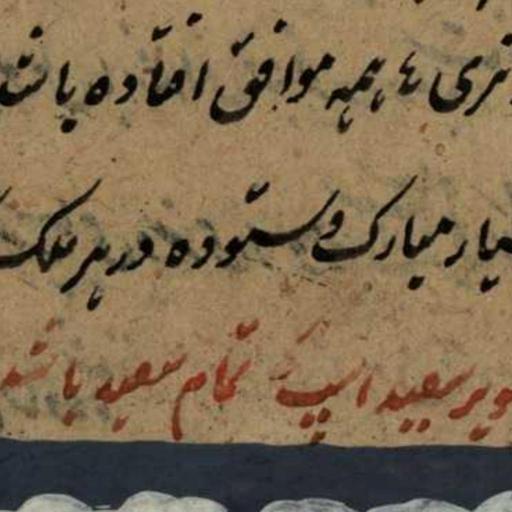 تری ء همه موافق افتاده باشد
بسیار مبارک و ستوده در هر ملک
ویر سعید است تمام سعید باشد